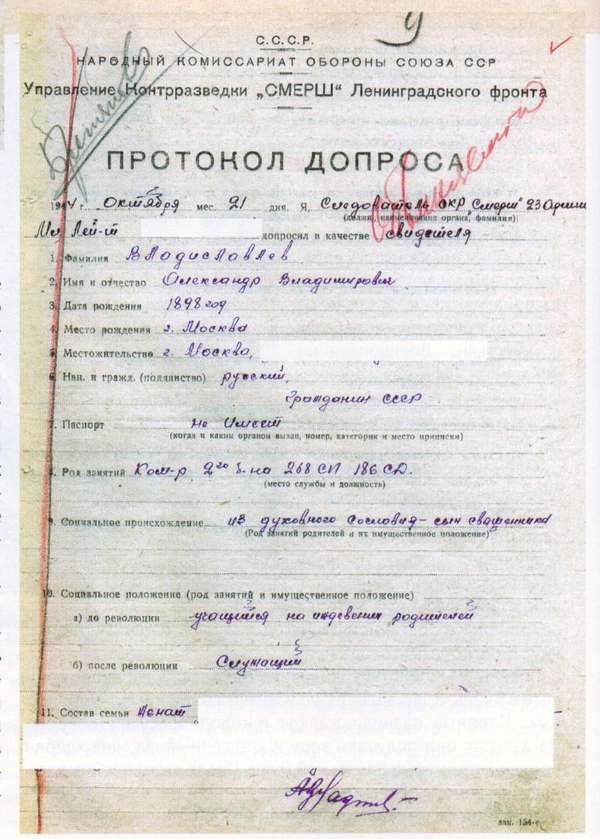 9
С.С.С.Р.
НАРОДНЫЙ КОМИССАРИАТ ОБОРОНЫ СОЮЗА ССР
Управление Контрразведки „СМЕРШ“ Ленинградского фронта
ПРОТОКОЛ ДОПРОСА
194 4 г. октября мес. 21 дня. Я, Следователь ОКР "Смерш" 23 Армии
(должн., наименование органа, фамилия)
Мл. Лей-т допросил в качестве свидетеля
1. Фамилия Владиславлев
2. Имя и отчество Александр Владимирович
3. Дата рождения 1898 год
4. Место рождения г. Москва
5. Местожительство г. Москва,
6. Нац. и гражд. (подданство) русский,
гражданин СССР
7. Паспорт не имеет
(когда и каким органом выдан, номер, категория и место прописки)
8. Род занятий Ком-р 2го б-на 268 СП 186 СД.
(место службы и должность)
9. Социальное происхождение из духовного сословия – сын священника
(Род занятий родителей и их имущественное положение)
10. Социальное положение (род занятий и имущественное положение)
а) до революции учащийся на иждевении родителей
б) после революции Служащий
11. Состав семьи женат
зак. 154-с